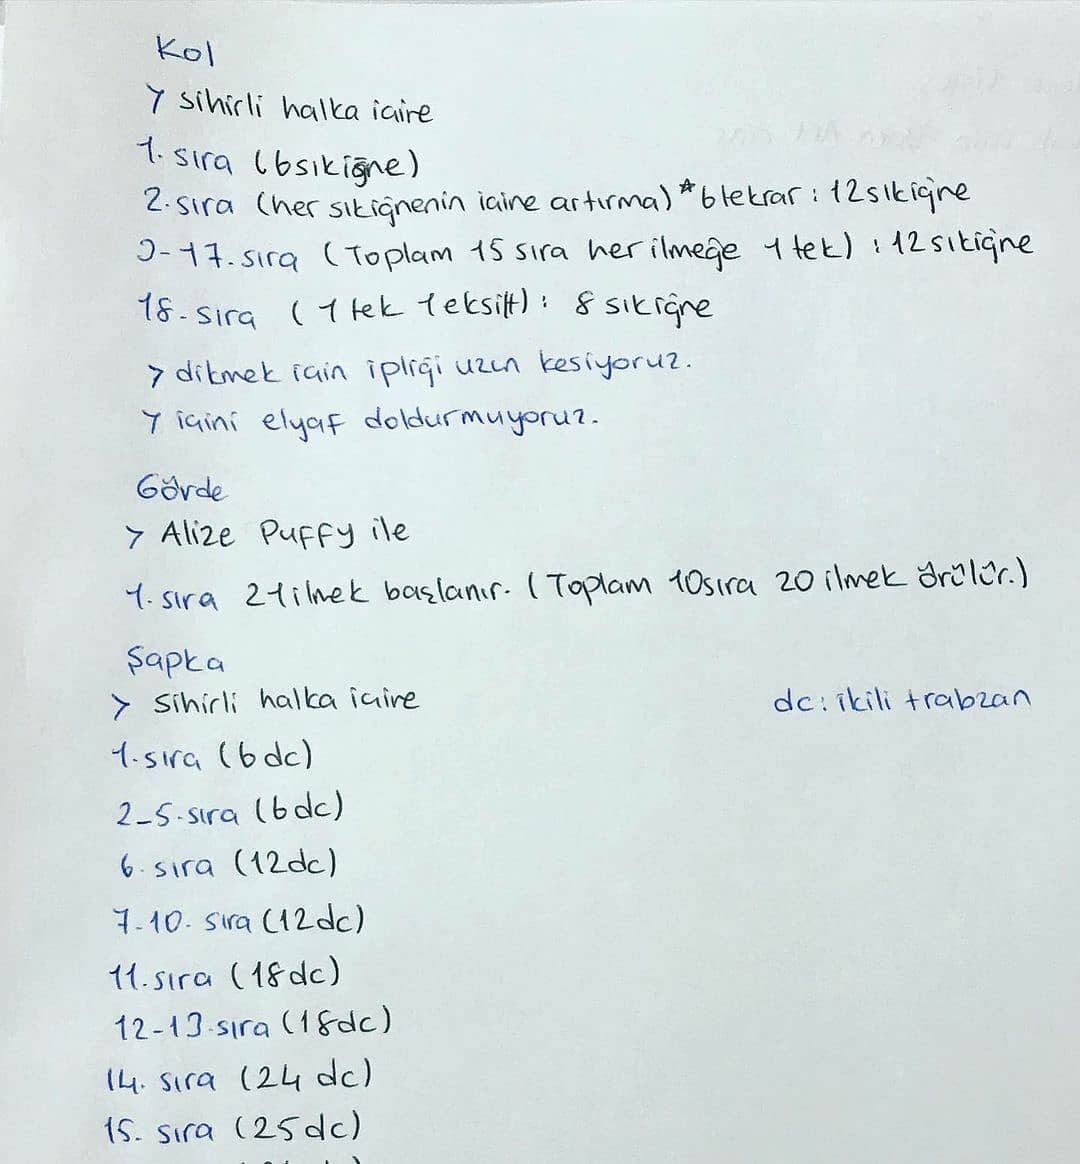 Kol
> sihirli halka içire
1. sıra (6sıkiğne)
2. sıra (her sıkiğnenin içine artırma) *6 tekrar : 12 sıkiğne
3-17. sıra (Toplam 15 sıra her ilmeğe 1 tek) : 12 sıkiğne
18. sıra (1 tek 1 eksilt) : 8 sıkiğne
> dikmek için ipliği uzun kesiyoruz.
> içini elyaf doldurmuyoruz.
Gövde
> Alize Puffy ile
1. sıra 21 ilmek başlanır. (Toplam 10sıra 20 ilmek örülür.)
Şapka
> Sihirli halka içire
dc: ikili trabzan
1. sıra (6 dc)
2-5. sıra (6 dc)
6. sıra (12dc)
7-10. sıra (12 dc)
11. sıra (18 dc)
12-13. sıra (18dc)
14. sıra (24 dc)
15. sıra (25 dc)